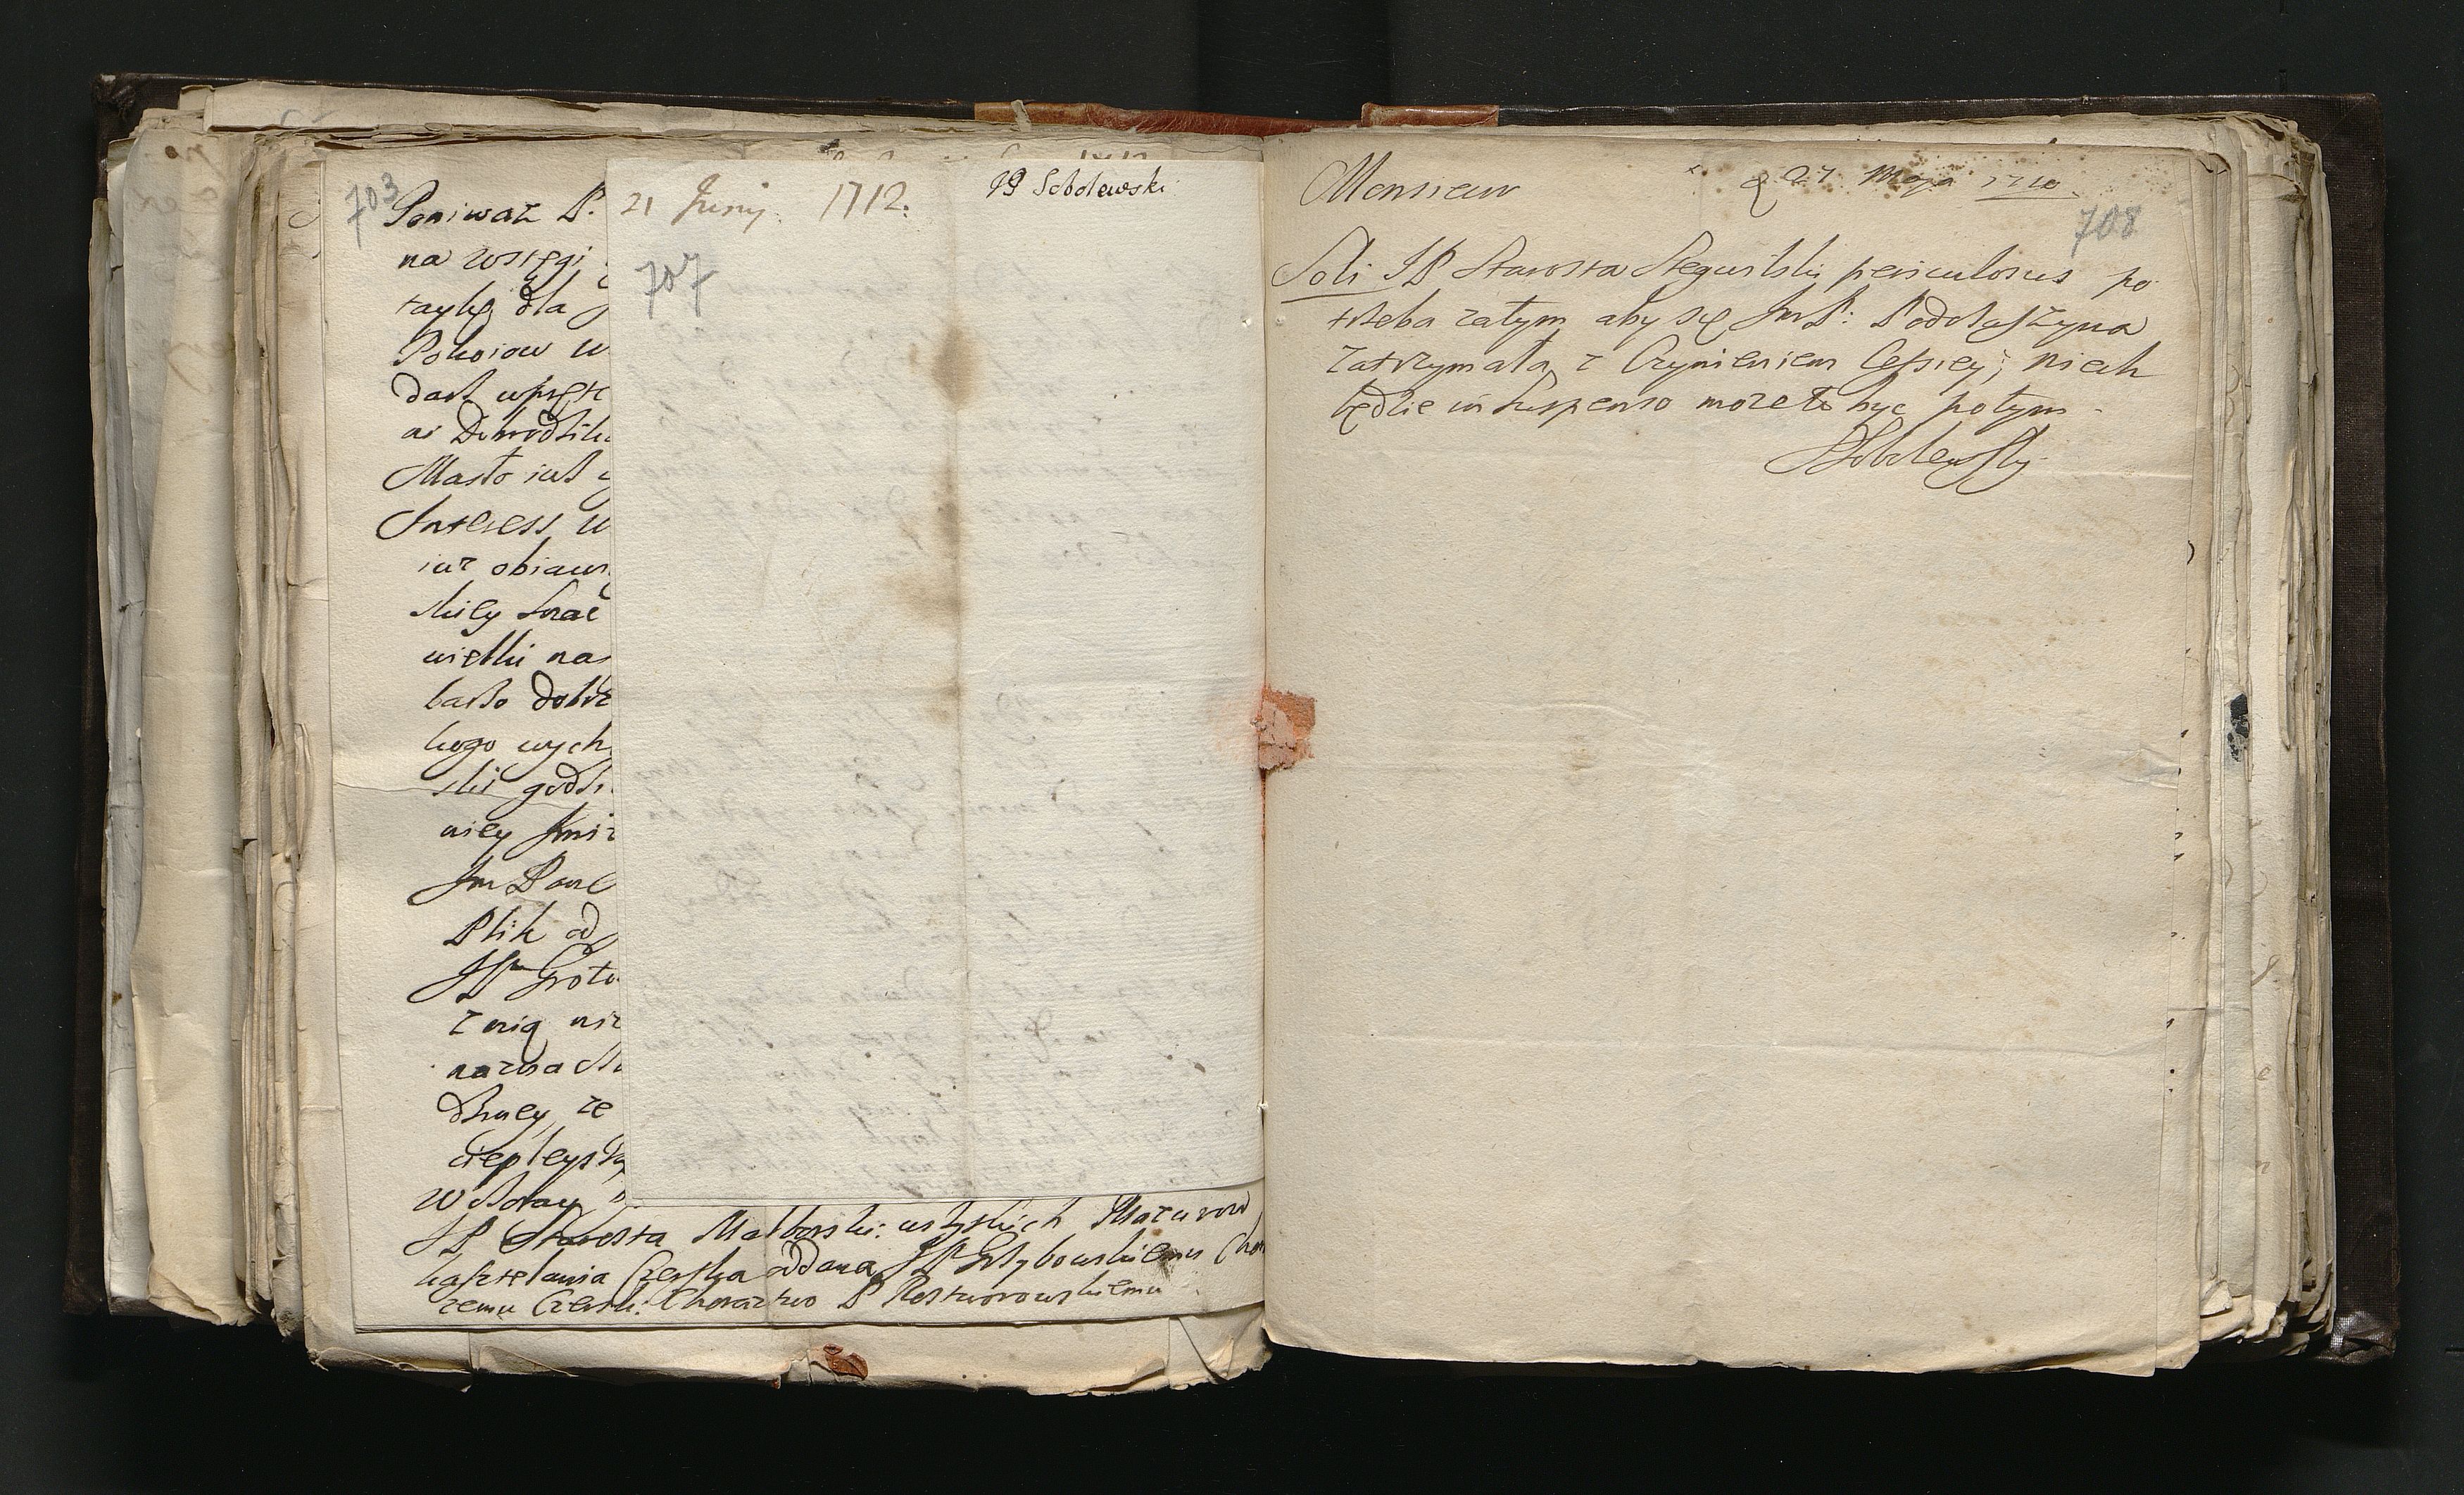 703
Poniwaz P.
na wstęgi
taykę dla
Pokoiow w
dast wprętc
ai Dobrodzik
Masło iusz
Interess w
iuz obiawi
skiey Szrac
wielki nas
barzo dobrz
kogo wych
ski godzi
niey Jmiz
Jm Pane
Plik od
z nią niz
nazwa
dzney ze
cieplejszy
W
JP Starosta Malborski: wszystkich Mazurow
kasztelania Czerska oddana JP Grzybowskiemu Cho
zemu Czersk: Chorąztwo P Rostworowskiemu
21 Junij 1712.
JP Sobolewski
707
Monsieur
d 27 Maja 1710
708
Soli JP Starosta Stęgwilski periculosus po
trzeba zatym aby się JmP: Podstaszyna
zatrzymała z Czynieniem Cessiey; niech
będzie in suspenso mozeto byc potym.
JSobolewsky